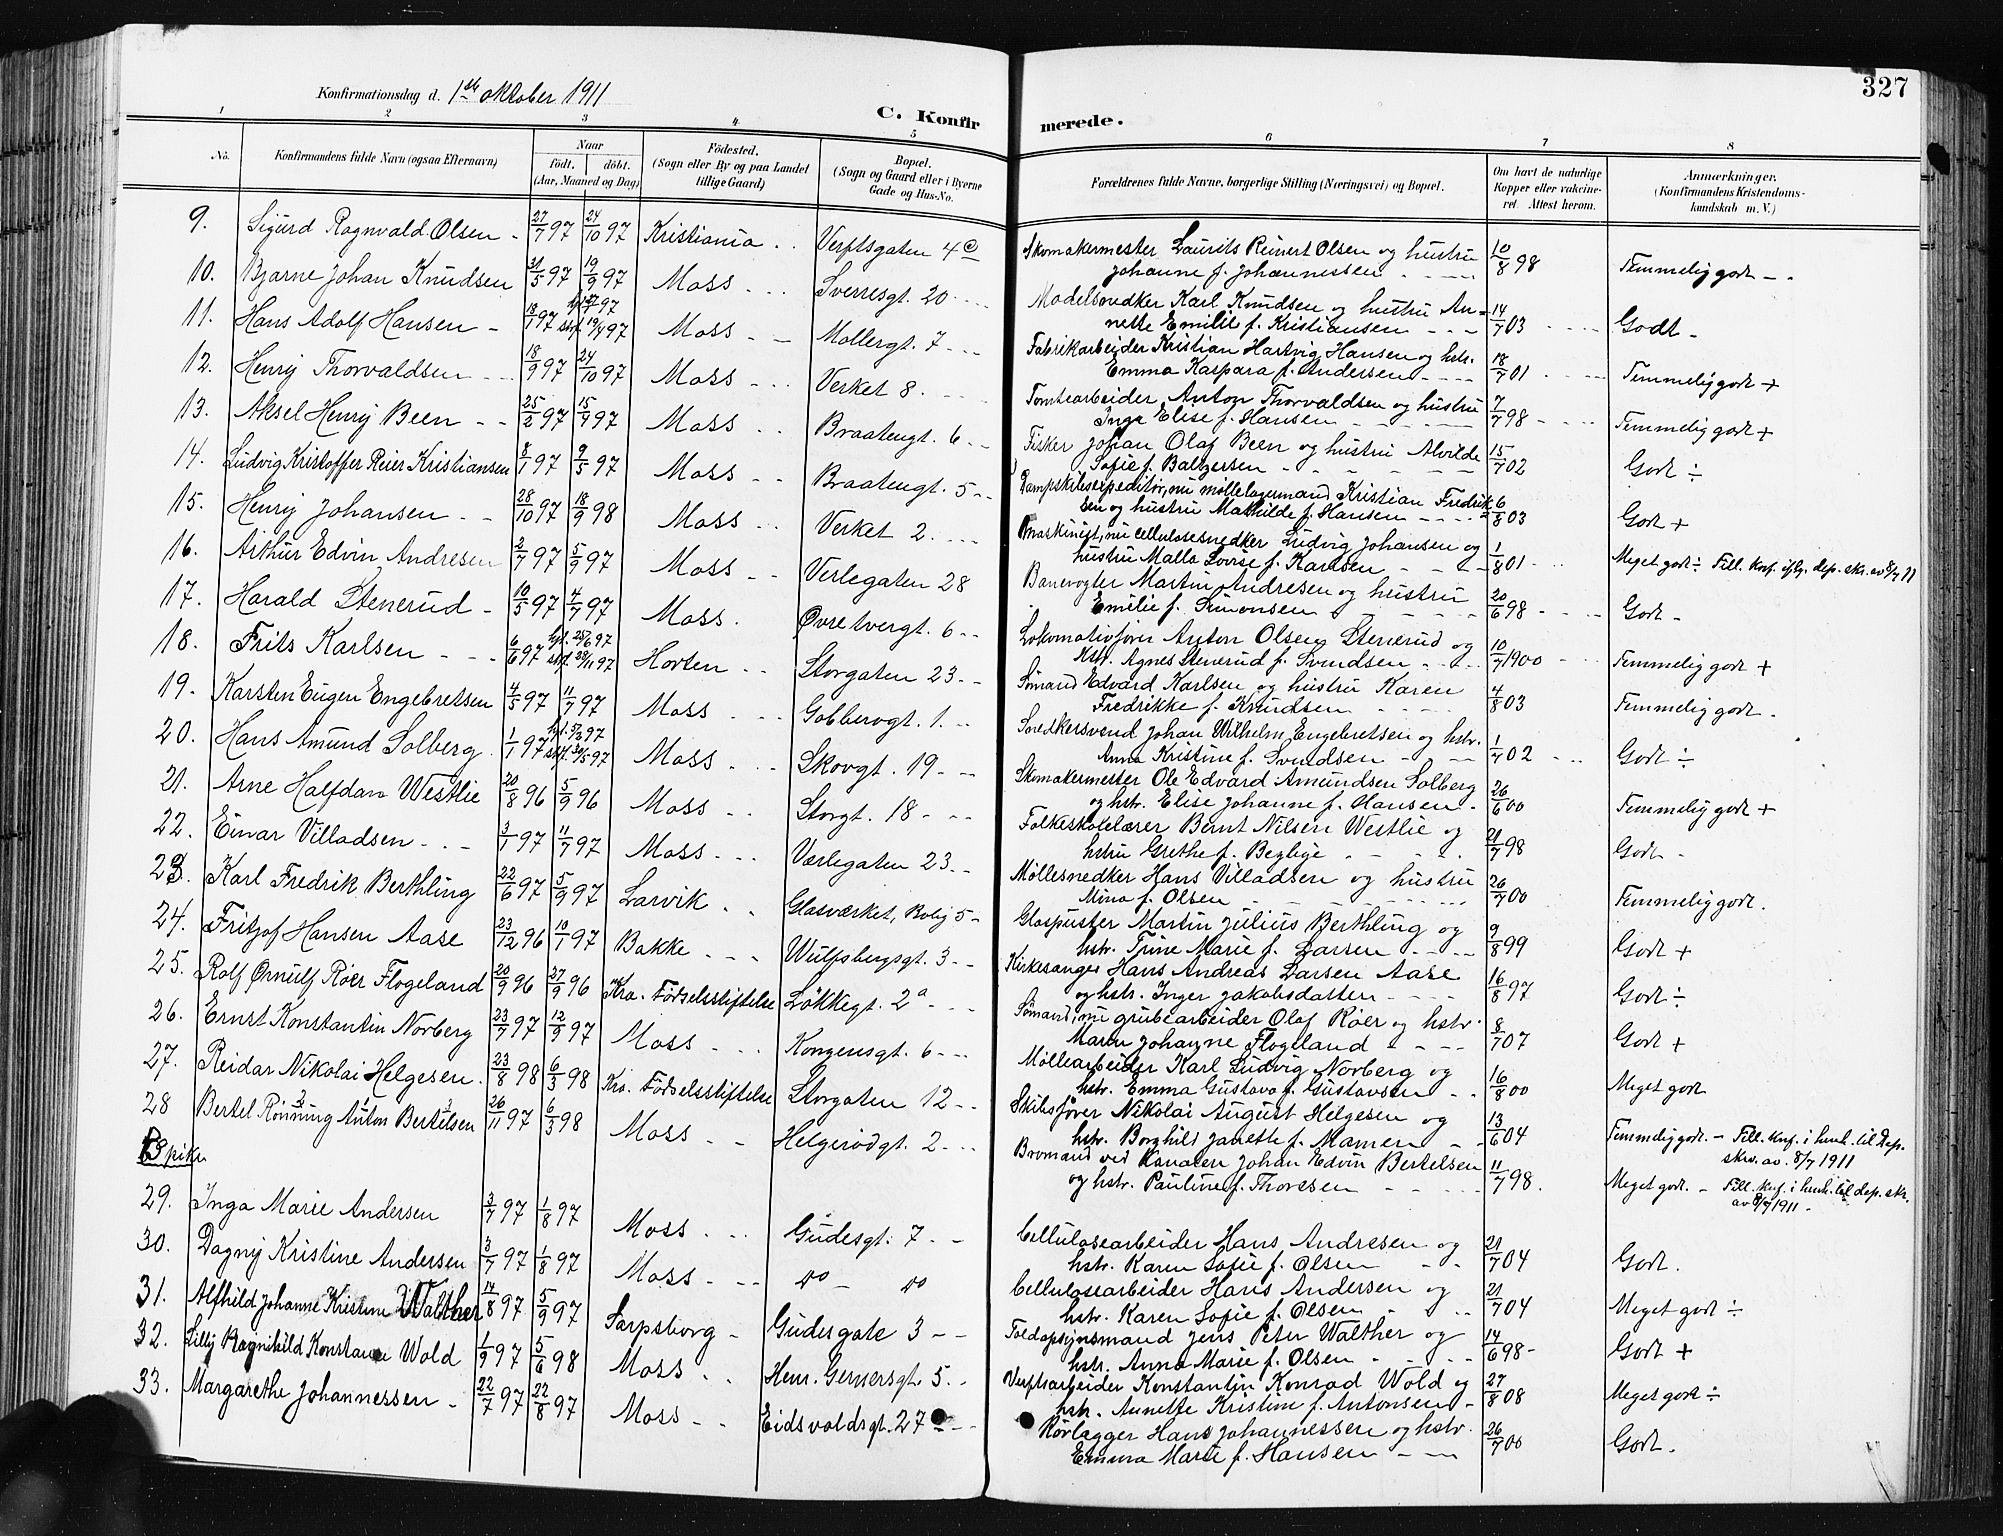 Konfirmationsdag d. 1ste oktober 1911
C. Konfirmerede.
327
1 2 3 4 5 6 7 8
No. Konfirmandens fulde Navn (ogsaa Efternavn) Naar födt. döbt. (Aar, Maaned og Dag) Födested. (Sogn eller By og paa Landet tillige Gaard) Bopæl. (Sogn og Gaard eller i Byerne Gade og Hus-No. Forældrenes fulde Navne, borgerlige Stilling (Næringsvei) og Bopæl. Om havt de naturlige Kopper eller vakcineret. Attest herom. Anmerkninger. (Konfirmandens Kristendomskundskab m. V.)
9. Sigurd Ragnvald Olsen 27/7 97 24/10 97 Kristiania Verftsgaten 4c Skomakermester Laurits Reinert Olsen og hustru Johanne f. Johannessen 10/8 98 Temmelig godt
10. Bjarne Johan Knudsen 31/5 97 19/9 97 Moss Sverresgt. 20 Modelsnedker Karl Knudsen og hustru Annette Emilie f. Kristiansen 14/7 03 Godt
11. Hans Adolf Hansen 18/1 97 97 stf. 19/4 97 Moss Mollergt. 7 Fabrikarbeider Kristian Hartvig Hansen og hstr. Emma Kaspara f. Andersen 18/7 01 Temmelig godt +
12. Henry Thorvaldsen 18/9 97 24/10 97 Moss Verket 8 Tomtearbeider Anton Thorvaldsen og hustru Inga Elise f. Hansen 7/7 98 Temmelig godt +
13. Aksel Henry Been 25/2 97 15/9 97 Moss Braatengt. 6 Fisker Johan Olaf Been og hustru Alvilde Sofie f. Baltzersen 15/7 02 Godt ÷
14. Ludvig Kristoffer Reier Kristiansen 8/1 97 9/5 97 Moss Braatengt. 5 Dampskibsexpeditör, nu möllelagermand Kristian Fredriksen og hustru Mathilde f. Hansen 6/8 03 Godt +
15. Henry Johansen 28/10 97 18/9 98 Moss Verket 2 Maskinist, nu cellulosesnedker Ludvig Johansen og hustru Malla Lovise f. Karlsen 1/8 01 Meget godt ÷ Till. konf. iflg. dep. skr. av 8/7 11
16. Arthur Edvin Andresen 2/7 97 5/9 97 Moss Verlegaten 28 Banevogter Martin Andresen og hustru Emilie f. Simonsen 20/6 98 Godt
17. Harald Stenerud 10/5 97 4/7 97 Moss Øvre tvergt. 6 Lokomotivfører Anton Olsen Stenerud og hstr. Agnes Stenerud f. Svendsen 10/7 1900 Temmelig godt +
18. Frits Karlsen 6/6 97 hjd. 25/6 97 stf. 28/11 97 Horten Storgaten 23 Sömand Edvard Karlsen og hustru Karen Fredrikke f. Knudsen 4/8 03 Temmelig godt
19. Karsten Eugen Engebretsen 4/5 97 11/7 97 Moss Gobberogt. 1 Snedkersvend Johan Wilhelm Engebretsen og hstr. Anna Kristine f. Svendsen 1/7 02 Godt ÷
20. Hans Amund Solberg 1/1 97 97 stf. 30/5 97 Moss Skovgt. 19 Skomakermester Ole Edvard Amundsen Solberg og hstr. Elise Johanne f. Hansen 26/6 00 Temmelig godt +
21. Arne Halfdan Westlie 20/8 96 5/9 96 Moss Storgt. 18 Folkeskolelærer Bernt Nilsen Westlie og hstru Grethe f. Beglige 21/7 98 Godt
22. Einar Villadsen 3/1 97 11/7 97 Moss Værlegaten 23 Möllesnedker Hans Villadsen og hustru Mina f. Olsen 26/7 00 Temmelig godt.
23. Karl Fredrik Berthling 22/6 97 5/9 97 Larvik Glasværket, Bolig 5 Glaspuster Martin Julius Berthling og hstr. Trine Marie f. Larsen 9/8 99 Godt +
24. Fritjof Hansen Aase 23/12 96 10/1 97 Bakke Wulfsbergsgt. 3 Kirkesanger Hans Andreas Larsen Aase og hstr. Inger Jakobsdatter 16/8 97 Godt ÷
25. Rolf Ørnulf Röer Flogeland 20/9 96 27/9 96 Kra. Födselsstiftelse Lökkegt. 2a Sömand, nu grubearbeider Olaf Röer og hstr. Maren Johanne Flogeland 8/7 07 Godt +
26. Ernst Konstantin Norberg 23/7 97 12/9 97 Moss Kongensgt. 6 Möllearbeider Karl Ludvig Norberg og hstr. Emma Gustava f. Gustavsen 16/8 00 Meget godt
27. Reidar Nikolai Helgesen 23/8 98 6/3 98 Kra. Födselsstiftelse Storgaten 12 Skibsförer Nikolai August Helgesen og hstr. Borghild Janette f. Mamen 13/6 04 Temmelig godt. – Till. konf. i henh. til Dep. skrv. av 8/7 1911
28 Bertel Rönning Anton Bertelsen 26/11 97 6/3 98 Moss Helgerödgt. 2 Bromand ved Kanalen Johan Edvin Bertelsen og hstr. Pauline f. Thoresen 11/7 98. Meget godt – Till. konf. i henh. til dep. skr. av 8/7 1911
piker
29. Inga Marie Andersen 3/7 97 1/8 97 Moss Gudesgt. 7 Cellulosearbeider Hans Andresen og hstr. Karen Sofie f. Olsen 21/7 04 Godt.
30. Dagny Kristine Andersen 3/7 97 1/8 97 Moss do – do Cellulosearbeider Hans Andersen og hstr. Karen Sofie f. Olsen 21/7 04 Meget godt ÷
31. Alfhild Johanne Kristine Walther 14/8 97 5/9 97 Sarpsborg Gudesgate 3 Toldopsynsmand Jens Peter Walther og hstr. Anna Marie f. Olsen 14/6 98 Godt +
32. Lilly Ragnhild Konstance Wold 1/9 97 5/6 98 Moss Henr. Gernersgt. 5 Verftsarbeider Konstantin Konrad Wold og hstr. Annette Kristine f. Antonsen 27/8 08 Meget godt ÷
33. Margarethe Johannessen 22/7 97 22/8 97 Moss Eidsvoldsgt. 27 Rörlægger Hans Johannessen og hstr. Emma Marie f. Hansen 26/7 00 Godt.